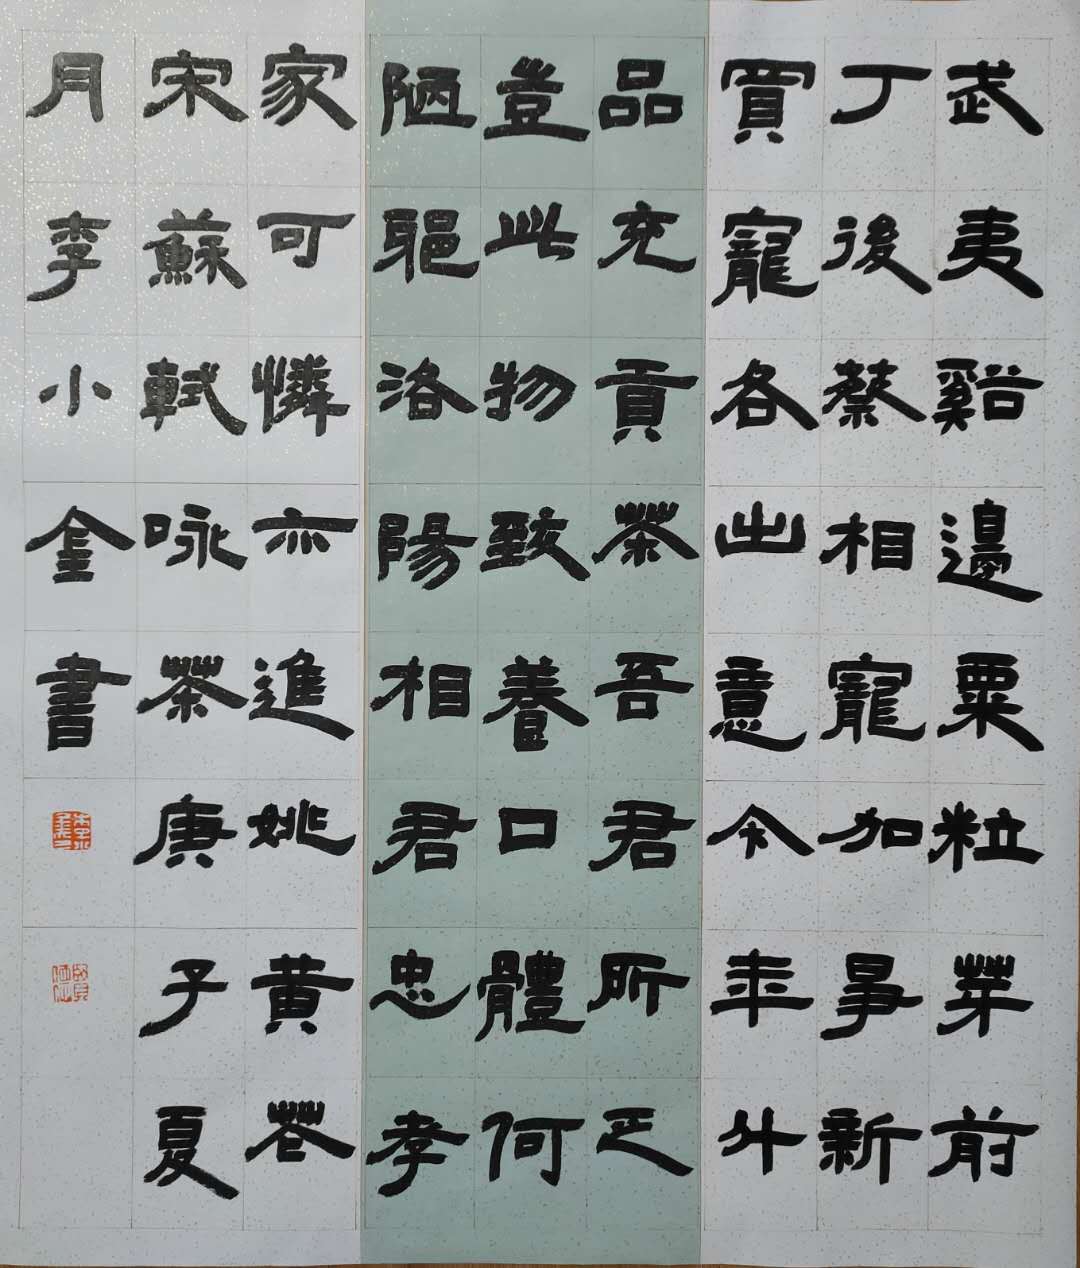 武夷谿邊粟粒芽前
丁後蔡相寵加爭新
買寵各出意今年斗
品充貢茶吾君所乏
豈此物致養口體何
陋耶洛陽相君忠孝
家可憐亦進姚黃花
宋蘇軾咏茶庚子夏
月李小金書